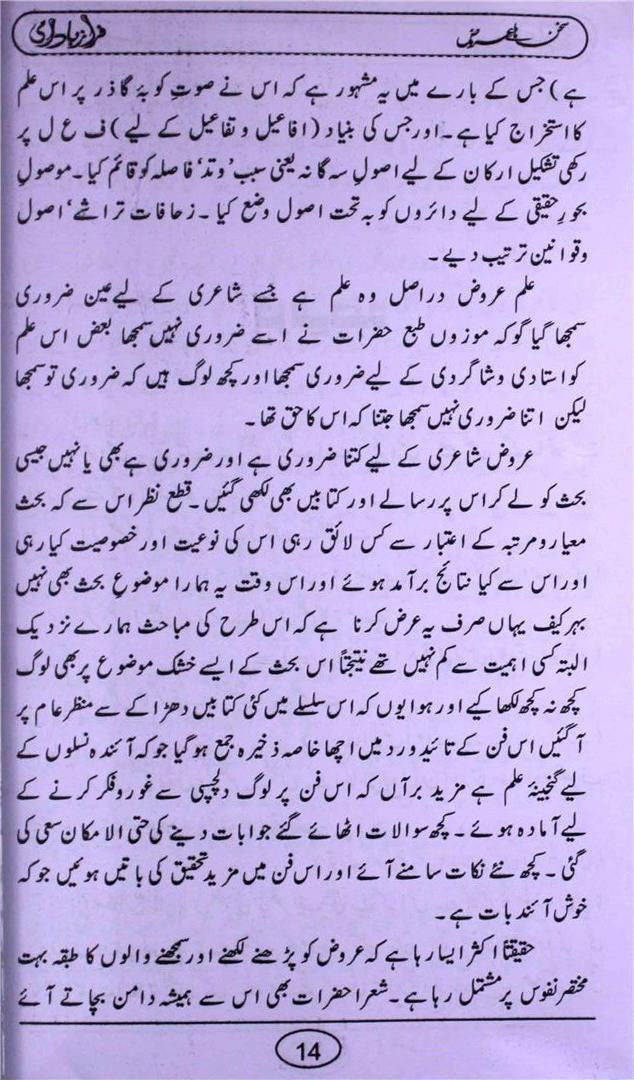 فراز بلداوری
ہے) جس کے بارے میں یہ مشہور ہے کہ اس نے صوتِ کوبۂ گاذر پر اس علم
کا استخراج کیا ہے۔ اور جس کی بنیاد (افاعیل و تفاعیل کے لیے) ف ع ل پر
رکھی تشکیل ارکان کے لیے اصولِ سہ گانہ یعنی سبب' وتد' فاصلہ کو قائم کیا۔ موصولِ
بحورِ حقیقی کے لیے دائروں کو بہ تحت اصول وضع کیا۔ زحافات تراشے' اصول
و قوانین ترتیب دیے۔
علم عروض دراصل وہ علم ہے جسے شاعری کے لیے عین ضروری
سمجھا گیا گو کہ موزوں طبع حضرات نے اسے ضروری نہیں سمجھا بعض اس علم
کو استادی و شاگردی کے لیے ضروری سمجھا اور کچھ لوگ ہیں کہ ضروری تو سمجھا
لیکن اتنا ضروری نہیں سمجھا جتنا کہ اس کا حق تھا۔
عروض شاعری کے لیے کتنا ضروری ہے اور ضروری ہے بھی یا نہیں جیسی
بحث کو لے کر اس پر رسالے اور کتابیں بھی لکھی گئیں۔ قطع نظر اس سے کہ بحث
معیار و مرتبہ کے اعتبار سے کس لائق رہی اس کی نوعیت اور خصوصیت کیا رہی
اور اس سے کیا نتائج برآمد ہوئے اور اس وقت یہ ہمارا موضوعِ بحث بھی نہیں
بہر کیف یہاں صرف یہ عرض کرنا ہے کہ اس طرح کی مباحث ہمارے نزدیک
البتہ کسی اہمیت سے کم نہیں تھے نتیجتاً اس بحث کے ایسے خشک موضوع پر بھی لوگ
کچھ نہ کچھ لکھا کیے اور ہوا یوں کہ اس سلسلے میں کئی کتابیں دھڑاکے سے منظر عام پر
آگئیں اس فن کے تائید و رد میں اچھا خاصہ ذخیرہ جمع ہو گیا جو کہ آئندہ نسلوں کے
لیے گنجینۂ علم ہے مزید برآں کہ اس فن پر لوگ دلچسپی سے غور و فکر کرنے کے
لیے آمادہ ہوئے۔ کچھ سوالات اٹھائے گئے جوابات دینے کی حتی الامکان سعی کی
گئی۔ کچھ نئے نکات سامنے آئے اور اس فن میں مزید تحقیق کی باتیں ہوئیں جو کہ
خوش آئند بات ہے۔
حقیقتاً اکثر ایسا رہا ہے کہ عروض کو پڑھنے لکھنے اور سمجھنے والوں کا طبقہ بہت
مختصر نفوس پر مشتمل رہا ہے۔ شعرا حضرات بھی اس سے ہمیشہ دامن بچاتے آئے
14